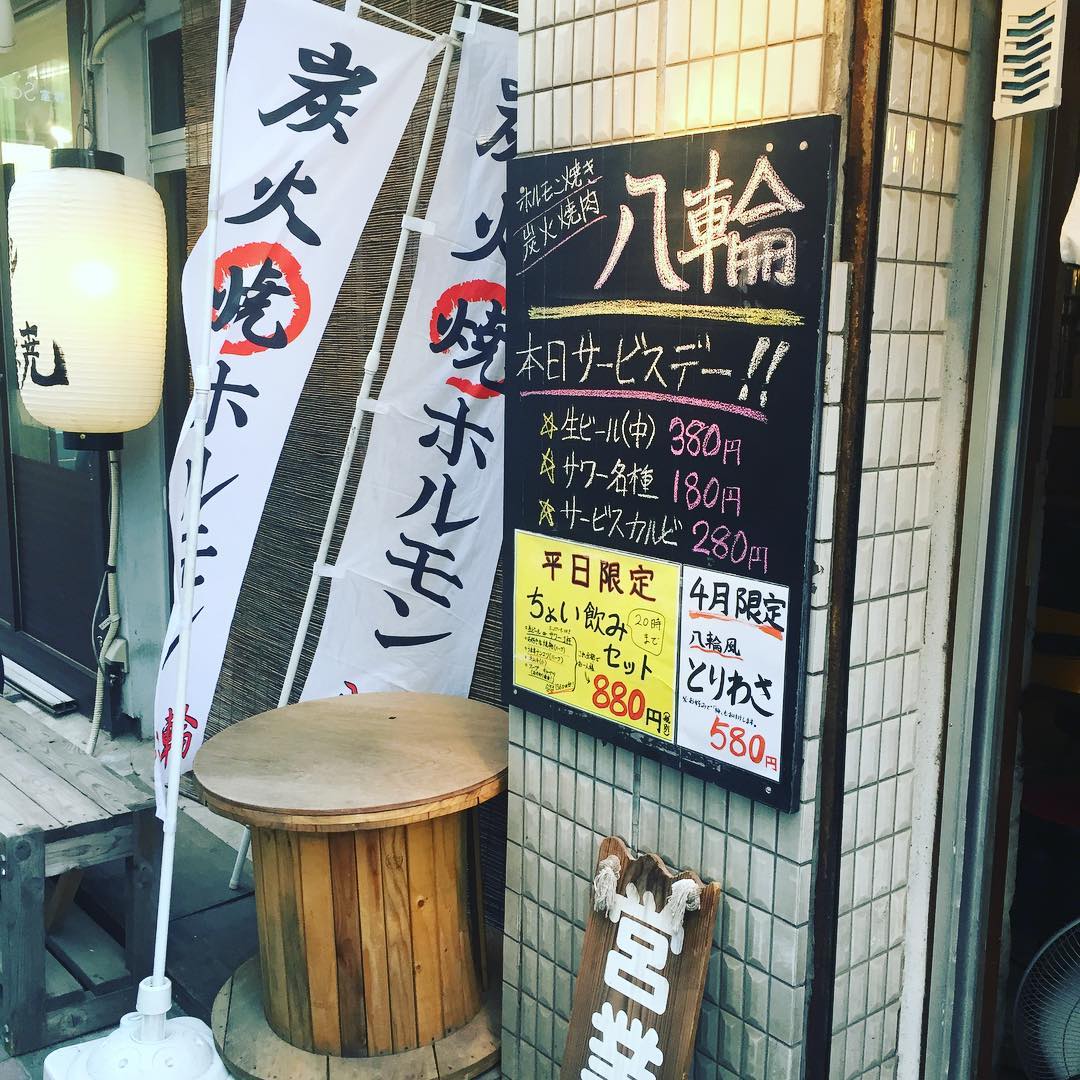 炭火焼ホルモン
輪
炭火焼ホルモン
焼
ホルモン焼き
炭火焼肉
八輪
本日サービスデー!!
☆生ビール(中) 380円
☆サワー各種 180円
☆サービスカルビ 280円
平日限定
ちょい飲み
20時まで
セット
880円
4月限定
八輪風
とりわさ
580円
営業